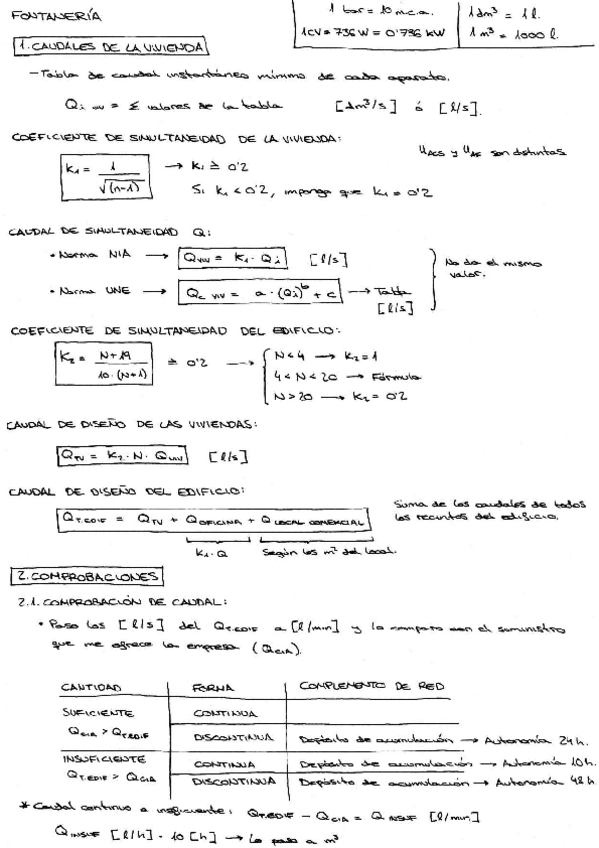 FONTANERÍA
1 bar = 10 m.c.a.
1CV = 736 W = 0'736 kW
1 dm³ = 1 l.
1 m³ = 1000 l.
1. CAUDALES DE LA VIVIENDA
- Tabla de caudal instantáneo mínimo de cada aparato.
Qi viv = Σ valores de la tabla [dm³/s] ó [l/s].
COEFICIENTE DE SIMULTANEIDAD DE LA VIVIENDA:
K₁ = 1 / √(n-1) → K₁ ≥ 0'2
Si K₁ < 0'2, impongo que K₁ = 0'2
nACS y nAF son distintas
CAUDAL DE SIMULTANEIDAD Q:
• Norma NIA → Qviv = K₁ · Qi [l/s]
• Norma UNE → Qc viv = a · (Qi)ᵇ + c → Tabla [l/s]
No da el mismo valor.
COEFICIENTE DE SIMULTANEIDAD DEL EDIFICIO:
K₂ = N+19 / 10·(N+1) ≥ 0'2 →
N<4 → K₂=1
4<N<20 → Fórmula
N>20 → K₂=0'2
CAUDAL DE DISEÑO DE LAS VIVIENDAS:
QTV = K₂ · N · Qviv [l/s]
CAUDAL DE DISEÑO DEL EDIFICIO:
QT.EDIF = QTV + QOFICINA + QLOCAL COMERCIAL
K₁·Q
Según los m² del local.
Suma de los caudales de todos
los recintos del edificio.
2. COMPROBACIONES
2.1. COMPROBACIÓN DE CAUDAL:
• Paso los [l/s] del QT.EDIF a [l/min] y lo comparo con el suministro
que me ofrece la empresa (QCIA).
CANTIDAD FORMA COMPLEMENTO DE RED
SUFICIENTE CONTINUA
QCIA > QT.EDIF DISCONTINUA Depósito de acumulación → Autonomía 24 h.
INSUFICIENTE CONTINUA Depósito de acumulación → Autonomía 10 h.
QT.EDIF > QCIA DISCONTINUA Depósito de acumulación → Autonomía 48 h
* Caudal continuo e insuficiente: QT.EDIF - QCIA = QINSUF [l/min]
QINSUF [l/h] · 10 [h] → Lo paso a m³